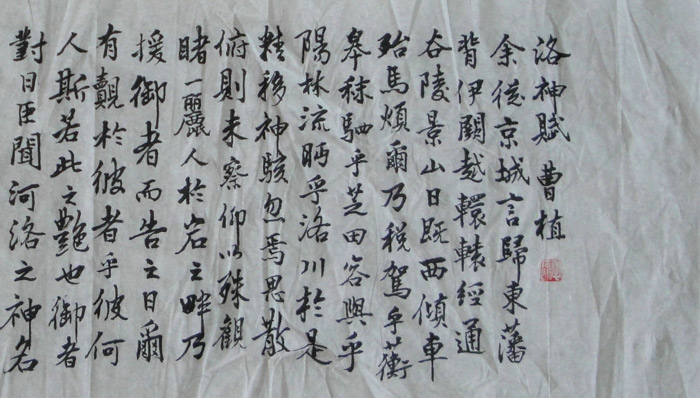 洛神賦 曹植
余從京城言歸東藩
背伊闕越轘轅經通
谷陵景山日既西傾車
殆馬煩爾乃税駕乎蘅
皋秣駟乎芝田容與乎
陽林流眄乎洛川於是
精移神駭忽焉思散
俯則未察仰以殊觀
睹一麗人於岩之畔乃
援御者而告之曰爾
有覿於彼者乎彼何
人斯若此之艷也御者
對曰臣聞河洛之神名